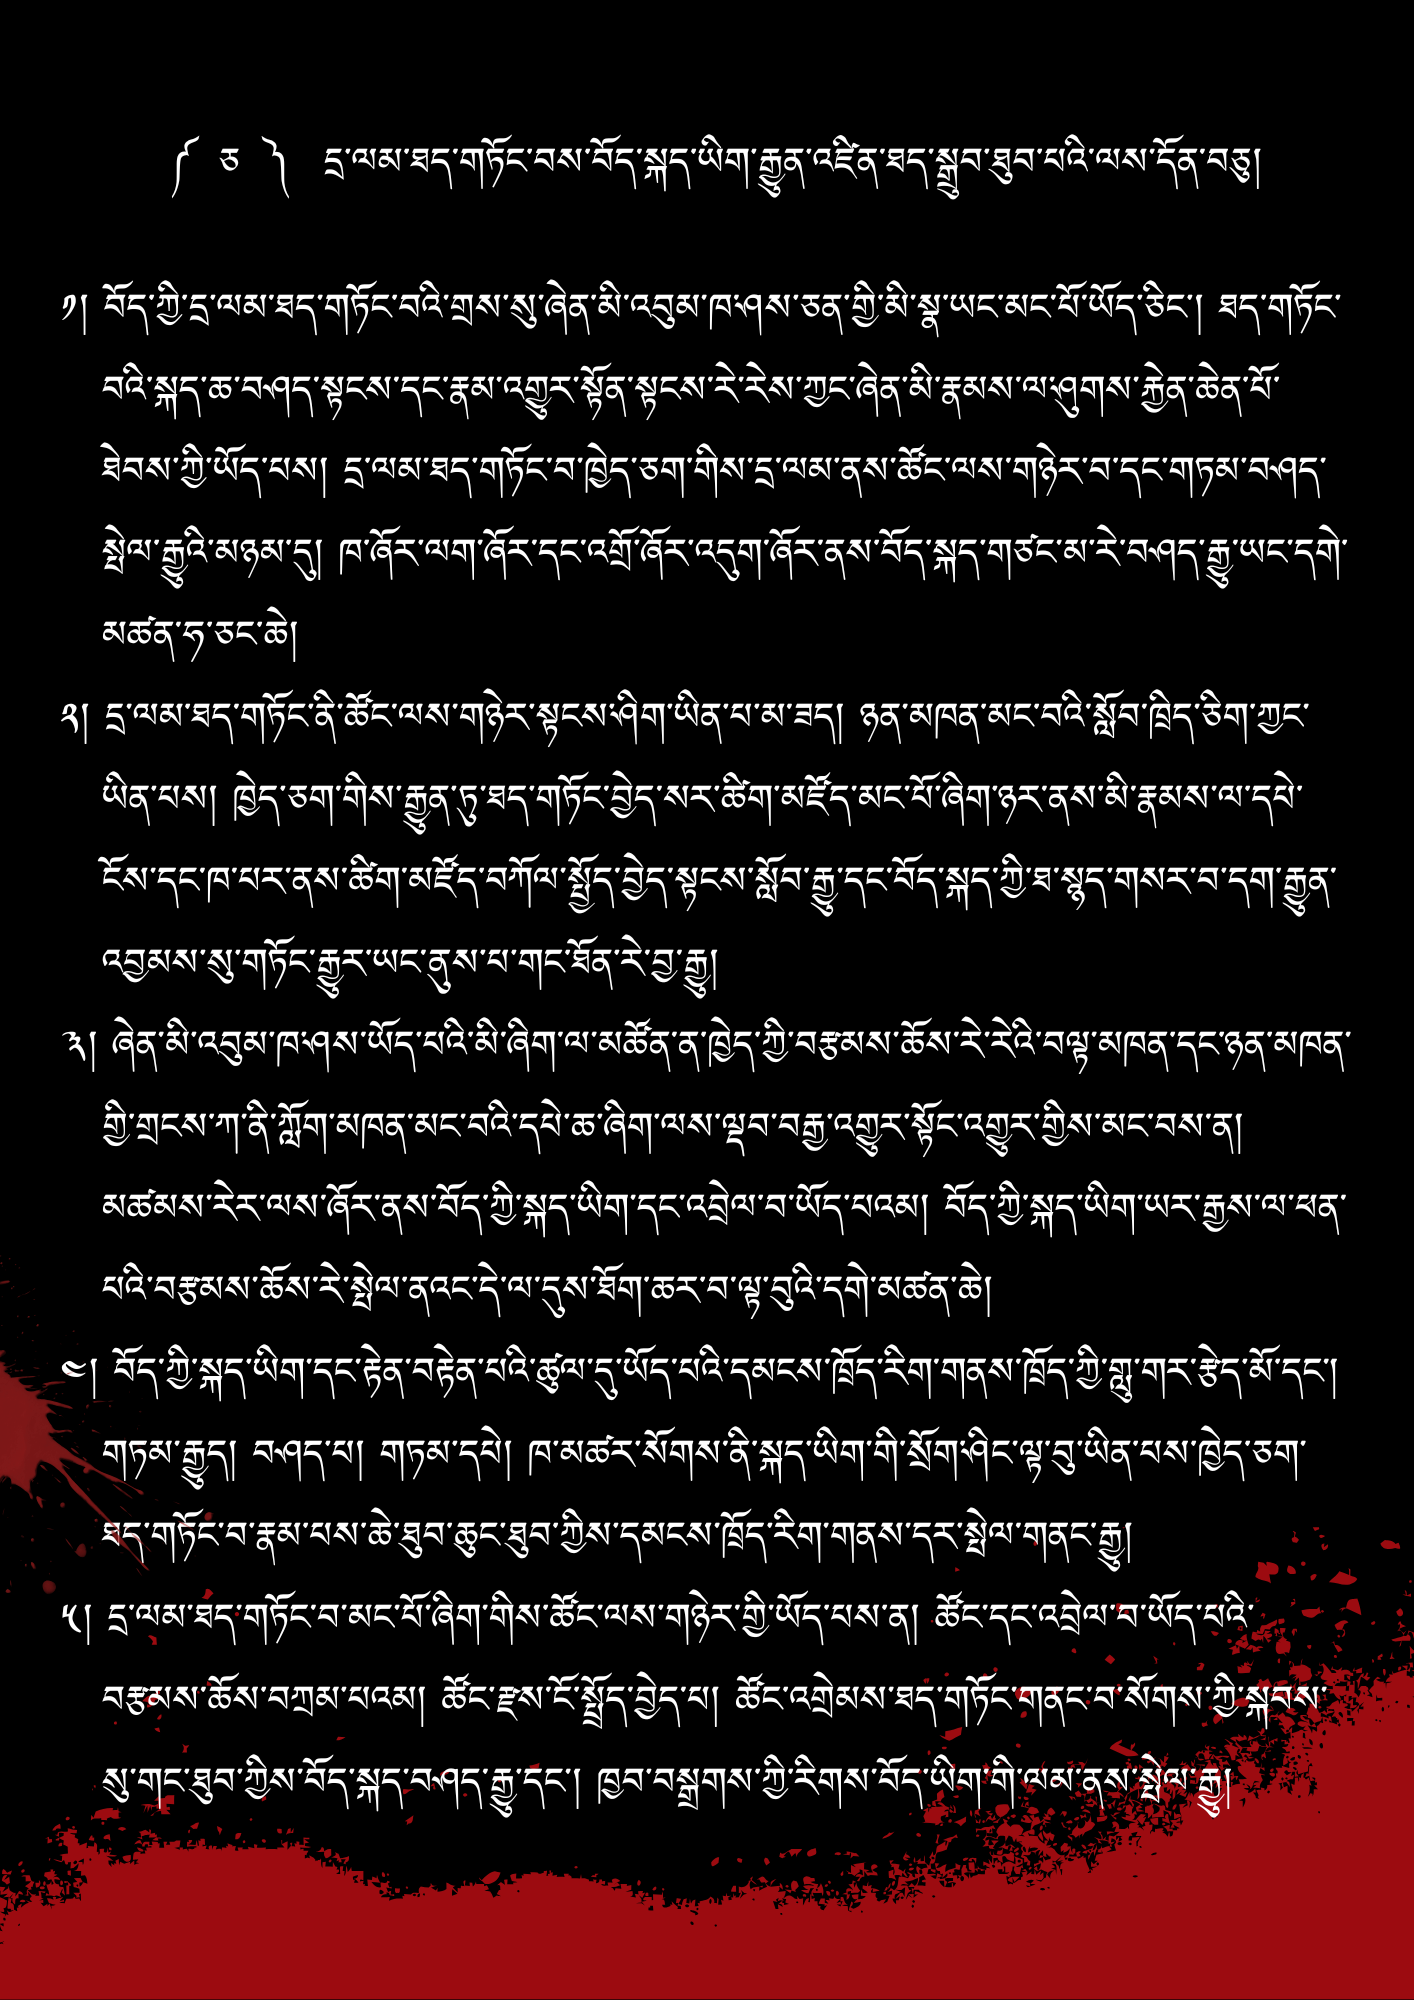 ༼ ཅ ༽ དྲ་ལམ་ཐད་གཏོང་བས་བོད་སྐད་ཡིག་རྒྱུན་འཛིན་ཐད་སྒྲུབ་ཐུབ་པའི་ལས་དོན་བཅུ།
༡། བོད་ཀྱི་དྲ་ལམ་ཐད་གཏོང་བའི་གྲས་སུ་ཞེན་མི་འབུམ་ཁ་ཤས་ཅན་གྱི་མི་སྣ་ཡང་མང་པོ་ཡོད་ཅིང་། ཐད་གཏོང་
བའི་སྐད་ཆ་བཤད་སྟངས་དང་རྣམ་འགྱུར་སྟོན་སྟངས་རེ་རེས་ཀྱང་ཞེན་མི་རྣམས་ལ་ཤུགས་རྐྱེན་ཆེན་པོ་
ཐེབས་ཀྱི་ཡོད་པས། དྲ་ལམ་ཐད་གཏོང་བ་ཁྱེད་ཅག་གིས་དྲ་ལམ་ནས་ཚོང་ལས་གཉེར་བ་དང་གཏམ་བཤད་
སྤེལ་རྒྱུའི་མཉམ་དུ། ཁ་ཞོར་ལག་ཞོར་དང་འགྲོ་ཞོར་འདུག་ཞོར་ནས་བོད་སྐད་གཙང་མ་རེ་བཤད་རྒྱུ་ཡང་དགེ་
མཚན་ཧ་ཅང་ཆེ།
༢། དྲ་ལམ་ཐད་གཏོང་ནི་ཚོང་ལས་གཉེར་སྟངས་ཤིག་ཡིན་པ་མ་ཟད། ཉན་མཁན་མང་བའི་སློབ་ཁྲིད་ཅིག་ཀྱང་
ཡིན་པས། ཁྱེད་ཅག་གིས་རྒྱུན་ཏུ་ཐད་གཏོང་བྱེད་སར་ཚིག་མཛོད་མང་པོ་ཞིག་ཉར་ནས་མི་རྣམས་ལ་དཔེ་
ངོས་དང་ཁ་པར་ནས་ཚིག་མཛོད་བཀོལ་སྤྱོད་བྱེད་སྟངས་སློབ་རྒྱུ་དང་བོད་སྐད་ཀྱི་ཐ་སྙད་གསར་བ་དག་རྒྱུན་
འབྱམས་སུ་གཏོང་རྒྱུར་ཡང་ནུས་པ་གང་ཐོན་རེ་བྱ་རྒྱུ།
༣། ཞེན་མི་འབུམ་ཁ་ཤས་ཡོད་པའི་མི་ཞིག་ལ་མཚོན་ན་ཁྱེད་ཀྱི་བརྩམས་ཆོས་རེ་རེའི་བལྟ་མཁན་དང་ཉན་མཁན་
གྱི་གྲངས་ཀ་ནི་ཀློག་མཁན་མང་བའི་དཔེ་ཆ་ཞིག་ལས་ལྡབ་བརྒྱ་འགྱུར་སྟོང་འགྱུར་གྱིས་མང་བས་ན།
མཚམས་རེར་ལས་ཞོར་ནས་བོད་ཀྱི་སྐད་ཡིག་དང་འབྲེལ་བ་ཡོད་པའམ། བོད་ཀྱི་སྐད་ཡིག་ཡར་རྒྱས་ལ་ཕན་
པའི་བརྩམས་ཆོས་རེ་སྤེལ་ནའང་དེ་ལ་དུས་ཐོག་ཆར་བ་ལྟ་བུའི་དགེ་མཚན་ཆེ།
༤། བོད་ཀྱི་སྐད་ཡིག་དང་རྟེན་བརྟེན་པའི་ཚུལ་དུ་ཡོད་པའི་དམངས་ཁྲོད་རིག་གནས་ཁྲོད་ཀྱི་གླུ་གར་རྩེད་མོ་དང་།
གཏམ་རྒྱུད། བཤད་པ། གཏམ་དཔེ། ཁ་མཚར་སོགས་ནི་སྐད་ཡིག་གི་སྲོག་ཤིང་ལྟ་བུ་ཡིན་པས་ཁྱེད་ཅག་
ཐད་གཏོང་བ་རྣམ་པས་ཆེ་ཐུབ་ཆུང་ཐུབ་ཀྱིས་དམངས་ཁྲོད་རིག་གནས་དར་སྤེལ་གནང་རྒྱུ།
༥། དྲ་ལམ་ཐད་གཏོང་བ་མང་པོ་ཞིག་གིས་ཚོང་ལས་གཉེར་གྱི་ཡོད་པས་ན། ཚོང་དང་འབྲེལ་བ་ཡོད་པའི་
བརྩམས་ཆོས་བཀྲམ་པའམ། ཚོང་རྫས་ངོ་སྤྲོད་བྱེད་པ། ཚོང་འགྲེམས་ཐད་གཏོང་གནང་བ་སོགས་ཀྱི་སྐབས་
སུ་གང་ཐུབ་ཀྱིས་བོད་སྐད་བཤད་རྒྱུ་དང་། ཁྱབ་བསྒྲགས་ཀྱི་རིགས་བོད་ཡིག་གི་ལམ་ནས་སྤེལ་རྒྱུ།